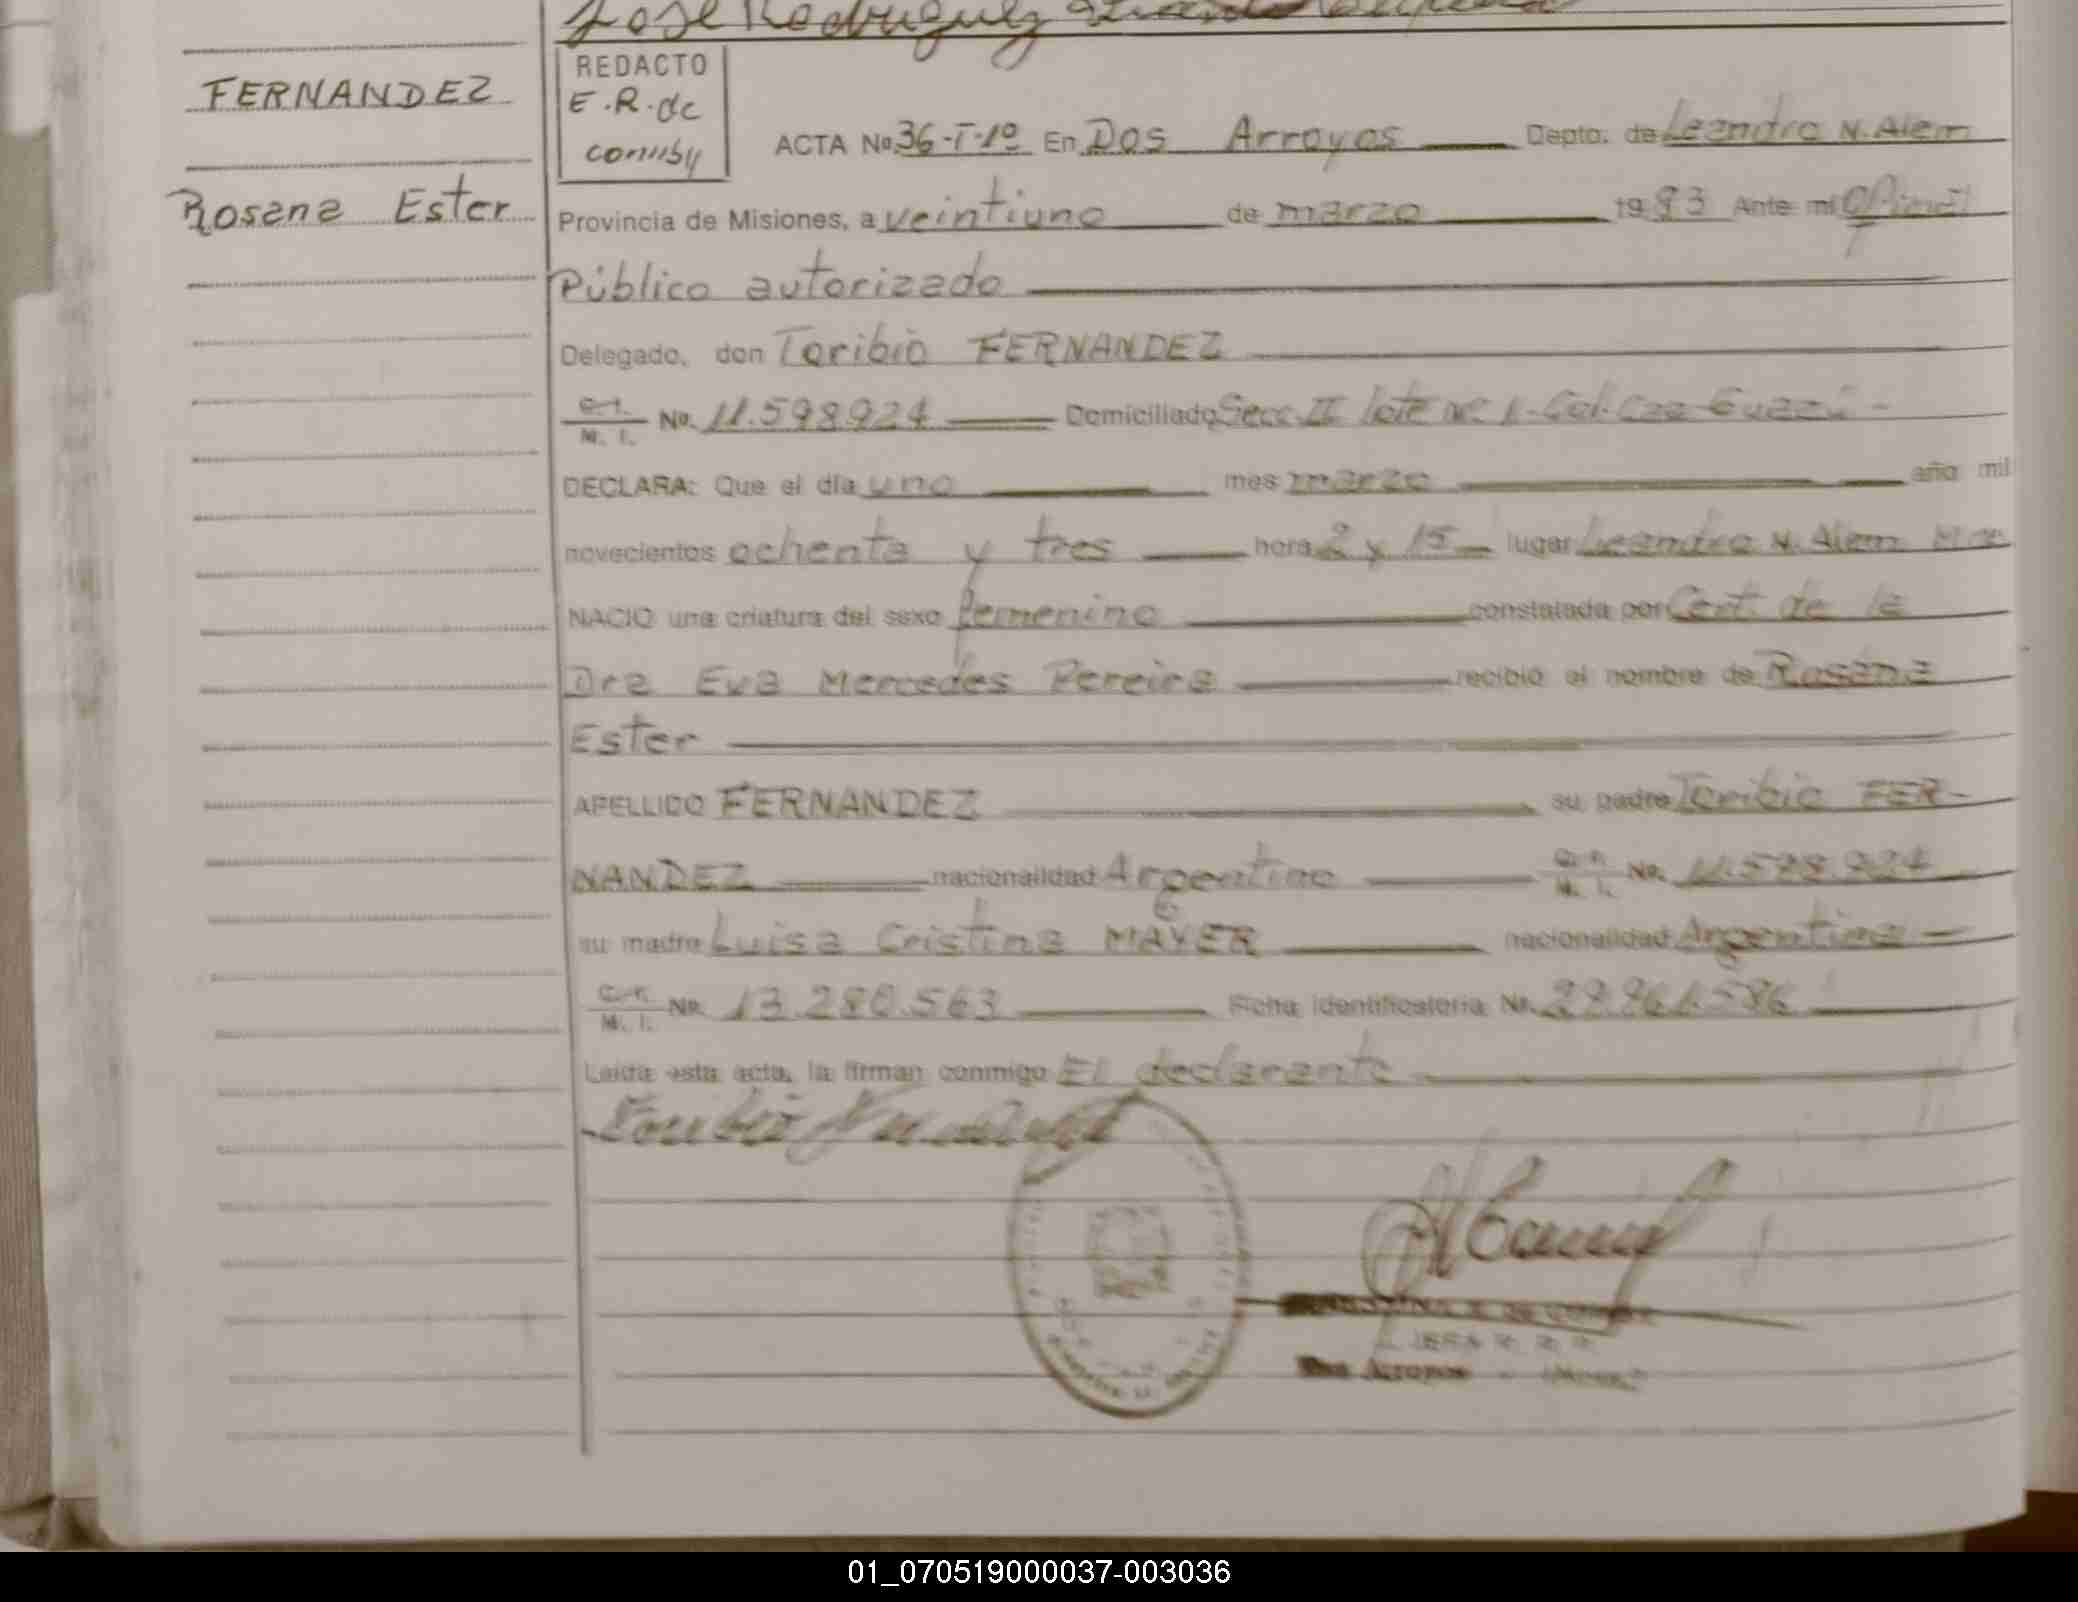 José Rodriguez
FERNANDEZ
Rosana Ester
REDACTO
E.R. de
ACTA No. 36-I-1º En Dos Arroyos Depto. de Leandro N. Alem
Provincia de Misiones, a veintiuno de marzo 1983 Ante mi
Público autorizado
Delegado, don Toribio FERNANDEZ
C.I. M. I. No. 11.598.924 Domiciliado Secc II lote Nº 1-Col. Caa-Guazú-
DECLARA: Que el día uno mes marzo año mil
novecientos ochenta y tres hora 2 y 15 lugar Leandro N. Alem Mnes
NACIO una criatura del sexo femenino constatada por Cert. de la
Dra Eva Mercedes Pereira recibió el nombre de Rosana
Ester
APELLIDO FERNANDEZ su padre Toribio FER-
NANDEZ nacionalidad Argentino C.I. M. I. No. 11.598.924
su madre Luisa Cristina MAYER nacionalidad Argentina -
C.I. M. I. No. 13.280.563 Ficha identificatoria No. 29.961.586
Leída esta acta, la firman conmigo El declarante
Toribio Fernandez
JEFA
Dos Arroyos
01_070519000037-003036